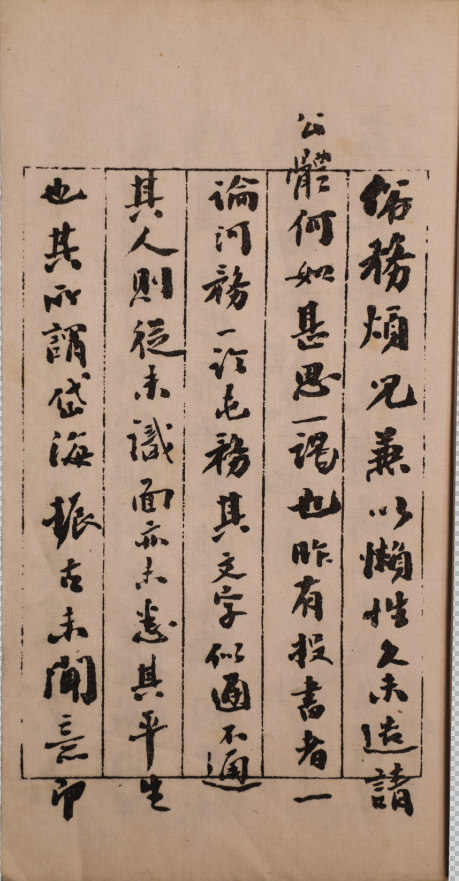 俗務煩冗兼以懶性久未造請
公體何如甚思一謁也昨有投書者一
論河務一論屯務其文字似通不通
其人則從未識面亦未悉其平生
也其所謂岱海振古未聞意即